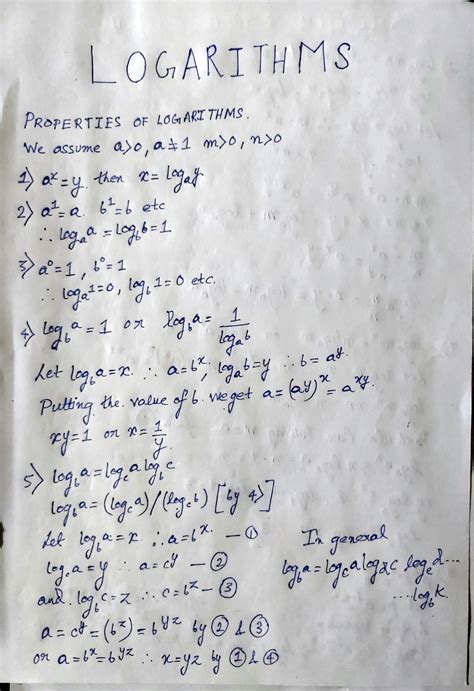 LOGARITHMS
PROPERTIES OF LOGARITHMS.
We assume a>0, a≠1 m>0, n>0
1) aˣ=y then x=logₐy
2) a¹=a. b¹=b etc
∴ logₐa=log_b b=1
3) a⁰=1, b⁰=1
∴ logₐ1=0, log_b 1=0 etc.
4) log_b a=1 or log_b a= 1/logₐb
Let log_b a=x. ∴ a=bˣ, logₐb=y ∴ b=aʸ.
Putting the value of b we get a=(aʸ)ˣ=aˣʸ.
xy=1 or x=1/y.
5) log_b a=log_c a log_b c
log_b a=(log_c a)/(log_c b) [by 4)]
Let log_b a=x ∴ a=bˣ. — ①
log_c a=y ∴ a=cʸ — ②
and log_b c=z ∴ c=bᶻ — ③
a=cʸ=(bᶻ)=bʸᶻ by ② & ③
or a=bˣ=bʸᶻ ∴ x=yz by ① & ④
In general
log_b a=log_c a log_d c log_e d...
....log_b k.